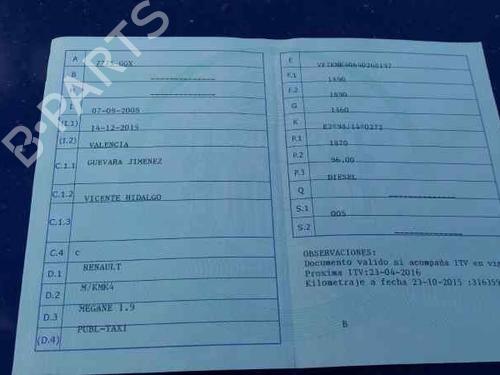 A
B
I 07-09-2005
(I.1) 14-12-2015
(I.2) VALENCIA
C.1.1 GUEVARA JIMENEZ
C.1.2 VICENTE HIDALGO
C.1.3
C.4 C
D.1 RENAULT
D.2 M/KMK4
D.3 MEGANE 1.9
(D.4) PUBL-TAXI
E
F.1 1890
F.2 1890
G 1460
K
P.1 1870
P.2 96,00
P.3 DIESEL
Q
S.1 005
S.2
OBSERVACIONES:
Documento valido si acompaña ITV en
Proxima ITV:23-04-2016
Kilometraje a fecha 23-10-2015 :316359
B
B-PARTS